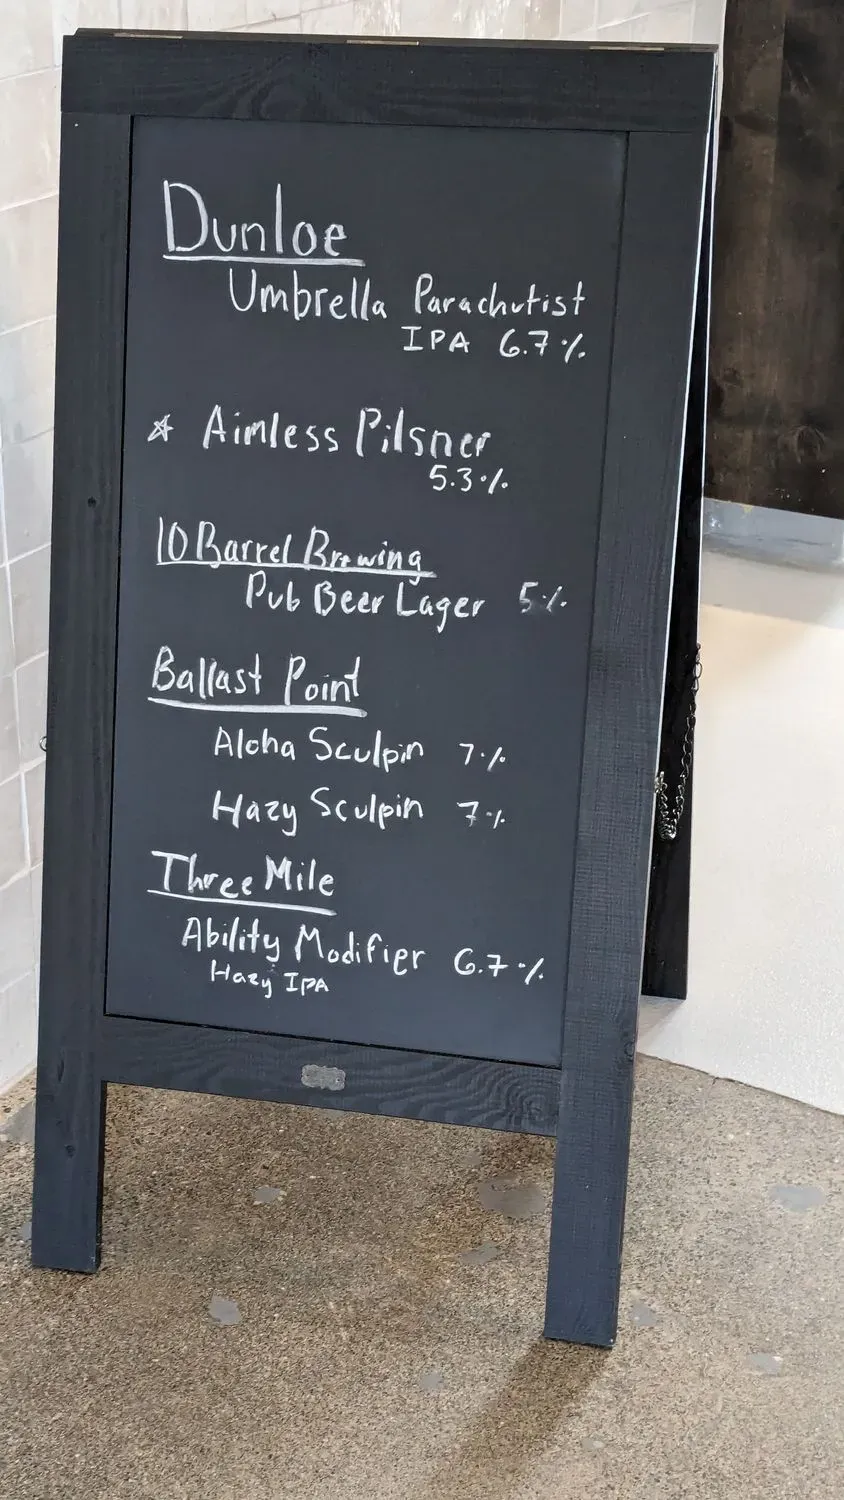 Dunloe
Umbrella Parachutist
IPA 6.7%
☆ Aimless Pilsner
5.3%
10 Barrel Brewing
Pub Beer Lager 5%
Ballast Point
Aloha Sculpin 7%
Hazy Sculpin 7%
Three Mile
Ability Modifier 6.7%
Hazy IPA